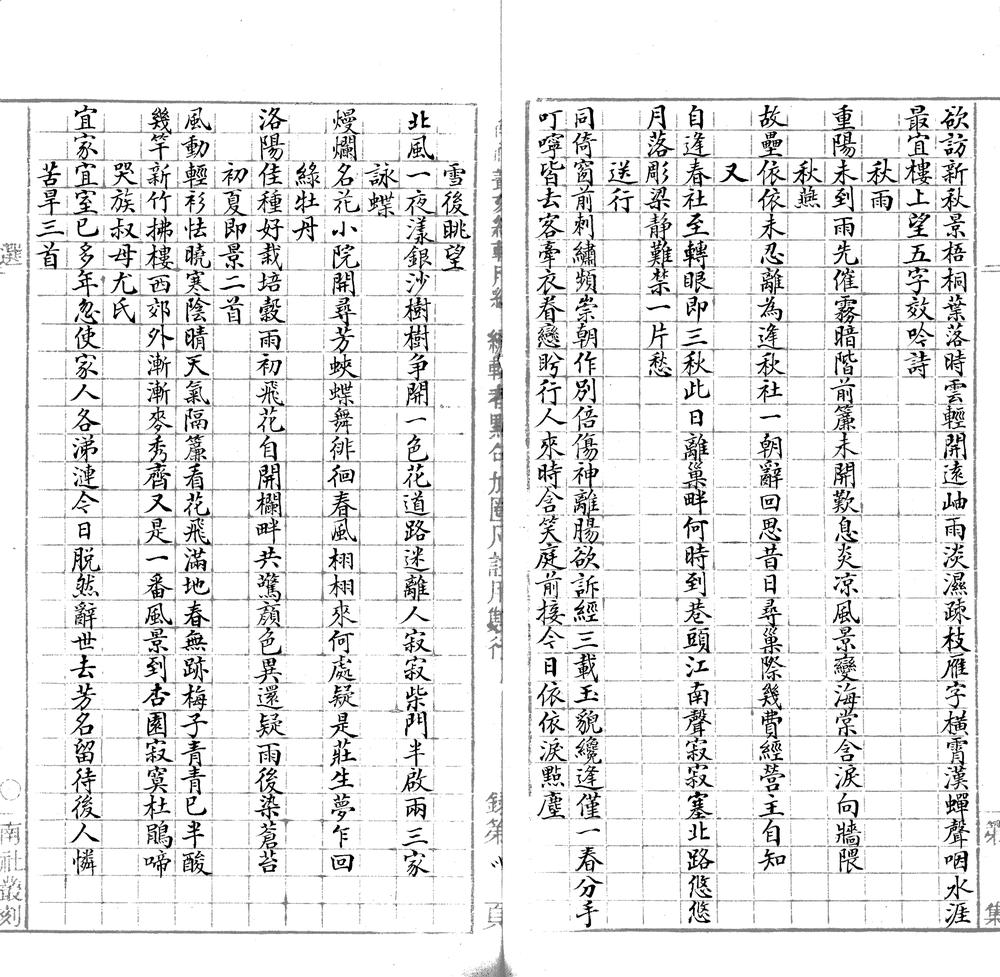 欲訪新秋景梧桐葉落時雲輕開遠岫雨淡濕疎枝雁字橫霄漢蟬聲咽水涯
最宜樓上望五字效吟詩
秋雨
重陽未到雨先催霧暗階前簾未開歎息炎凉風景變海棠含淚向牆隈
秋燕
故壘依依未忍離為逢秋社一朝辭回思昔日尋巢際幾費經營主自知
又
自逢春社至轉眼即三秋此日離巢畔何時到巷頭江南聲寂寂塞北路悠悠
月落彫梁静難禁一片愁
送行
同倚窗前刺繡頻崇朝作別倍傷神離腸欲訴經三載玉貌纔逢僅一春分手
叮嚀皆去客牽衣眷戀盼行人來時含笑庭前接今日依依淚點塵
雪後眺望
北風一夜漾銀沙樹樹争開一色花道路迷離人寂寂柴門半啟兩三家
詠蝶
熳爛名花小院開尋芳蛺蝶舞徘徊春風栩栩來何處疑是莊生夢乍回
綠牡丹
洛陽佳種好栽培穀雨初飛花自開欄畔共驚顏色異還疑雨後染蒼苔
初夏即景二首
風動輕衫怯曉寒陰晴天氣隔簾看花飛滿地春無跡梅子青青已半酸
幾竿新竹拂樓西郊外漸漸麥秀齊又是一番風景到杏園寂寞杜鵑啼
哭族叔母尤氏
宜家宜室已多年忽使家人各涕漣今日脱然辭世去芳名留待後人憐
苦旱三首
選
南社叢刻
第
頁
集